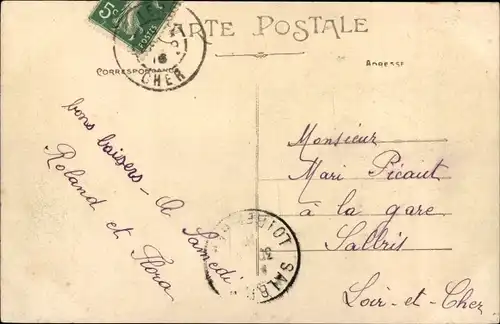 CARTE POSTALE
CORRESPONDANCE
ADRESSE
5c
CHER
bons baisers - A Samedi
Roland et Flora
Monsieur
Mari Picaut
à la gare
Salbris
Loir-et-Cher